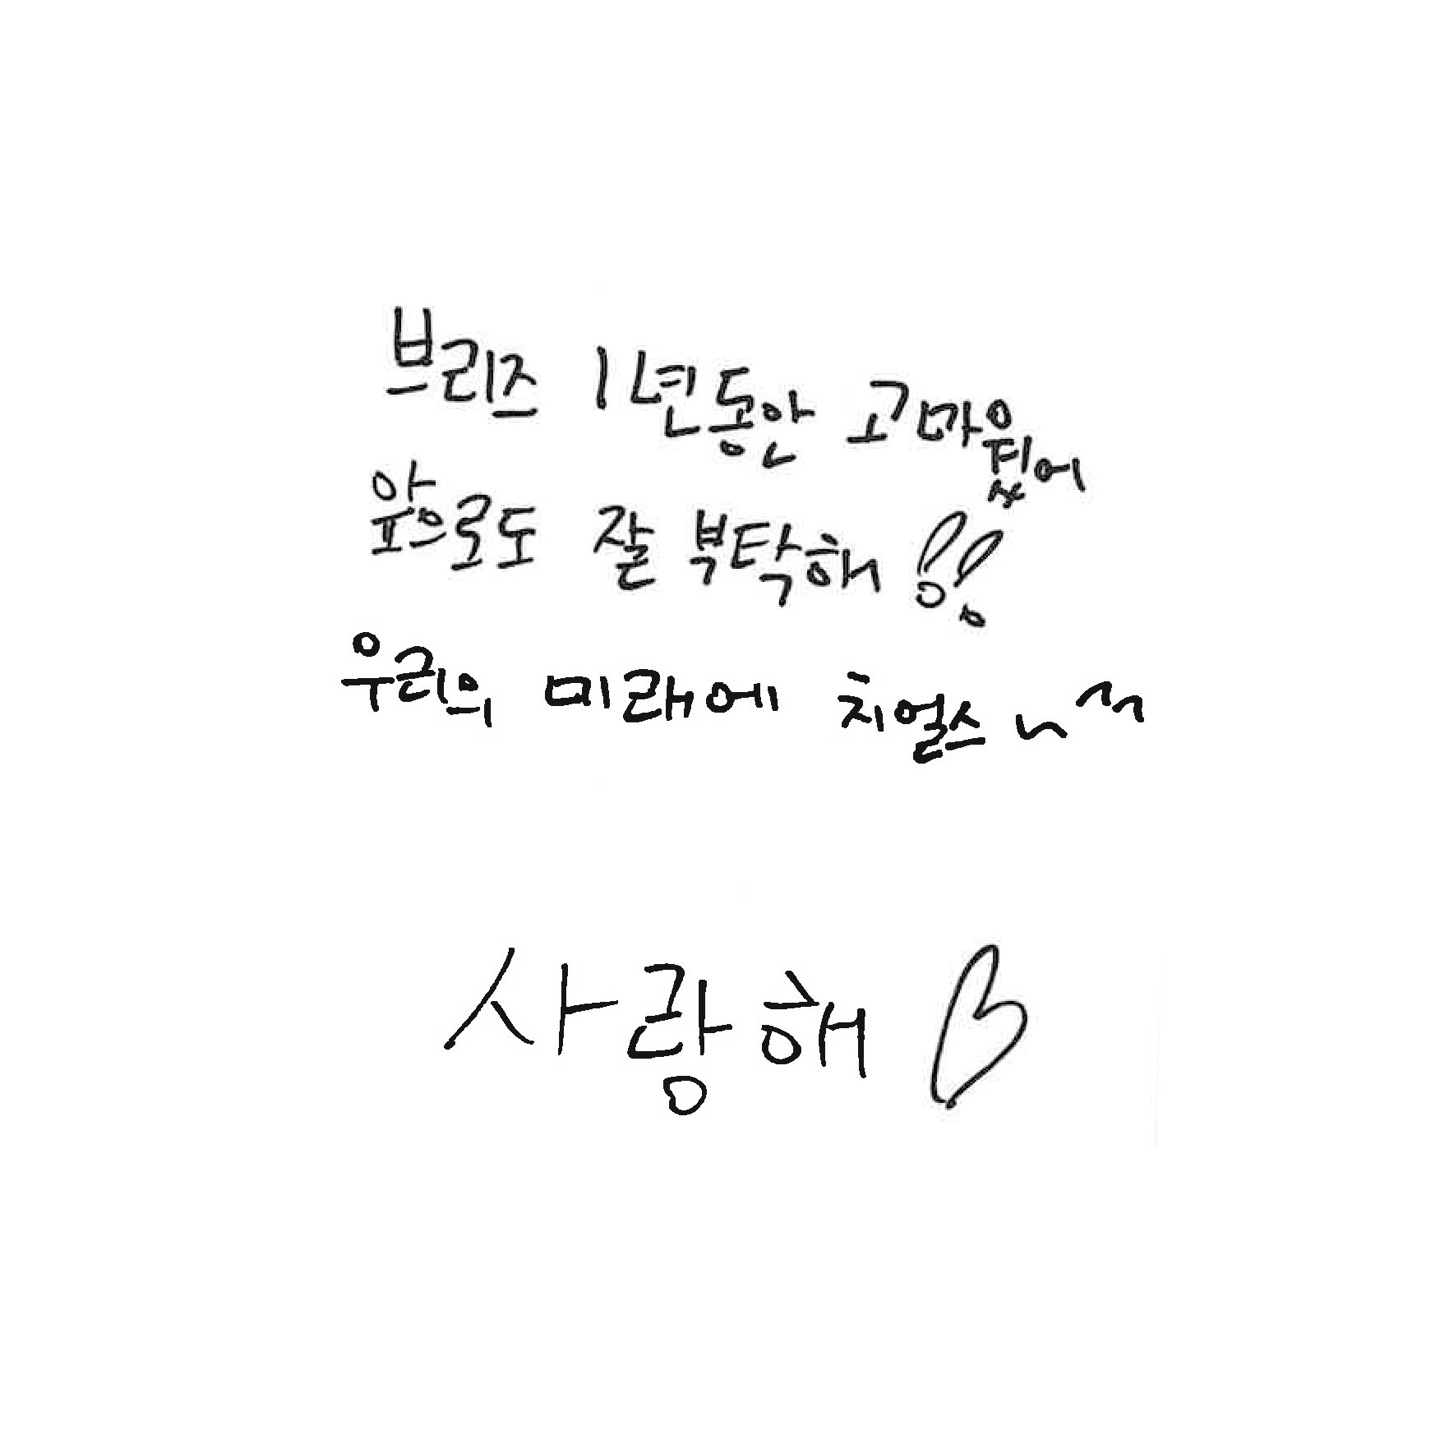 브리즈 1년동안 고마웠어
앞으로도 잘 부탁해!!
우리의 미래에 치얼스 ~^^
사랑해 ♡